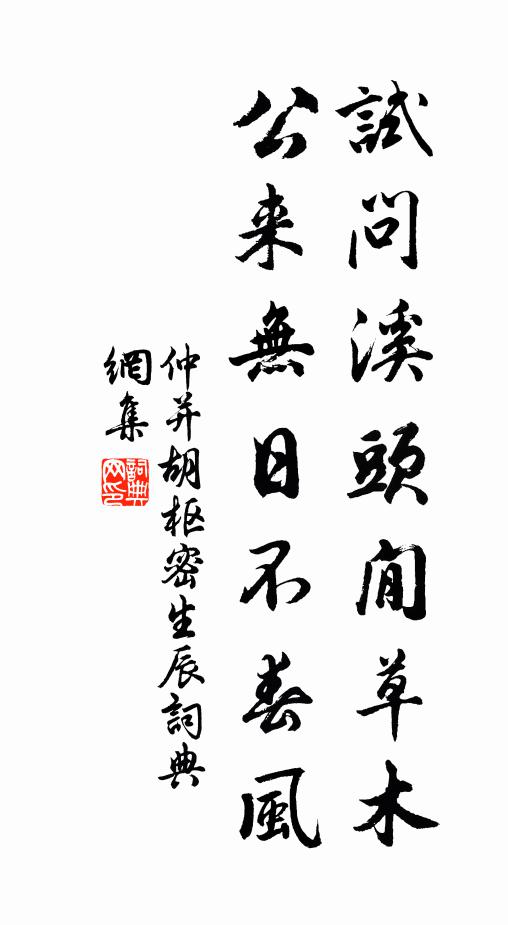 試問溪頭閒草木
公来無日不春風
仲并胡枢密生辰詞典
網集
詞典網印